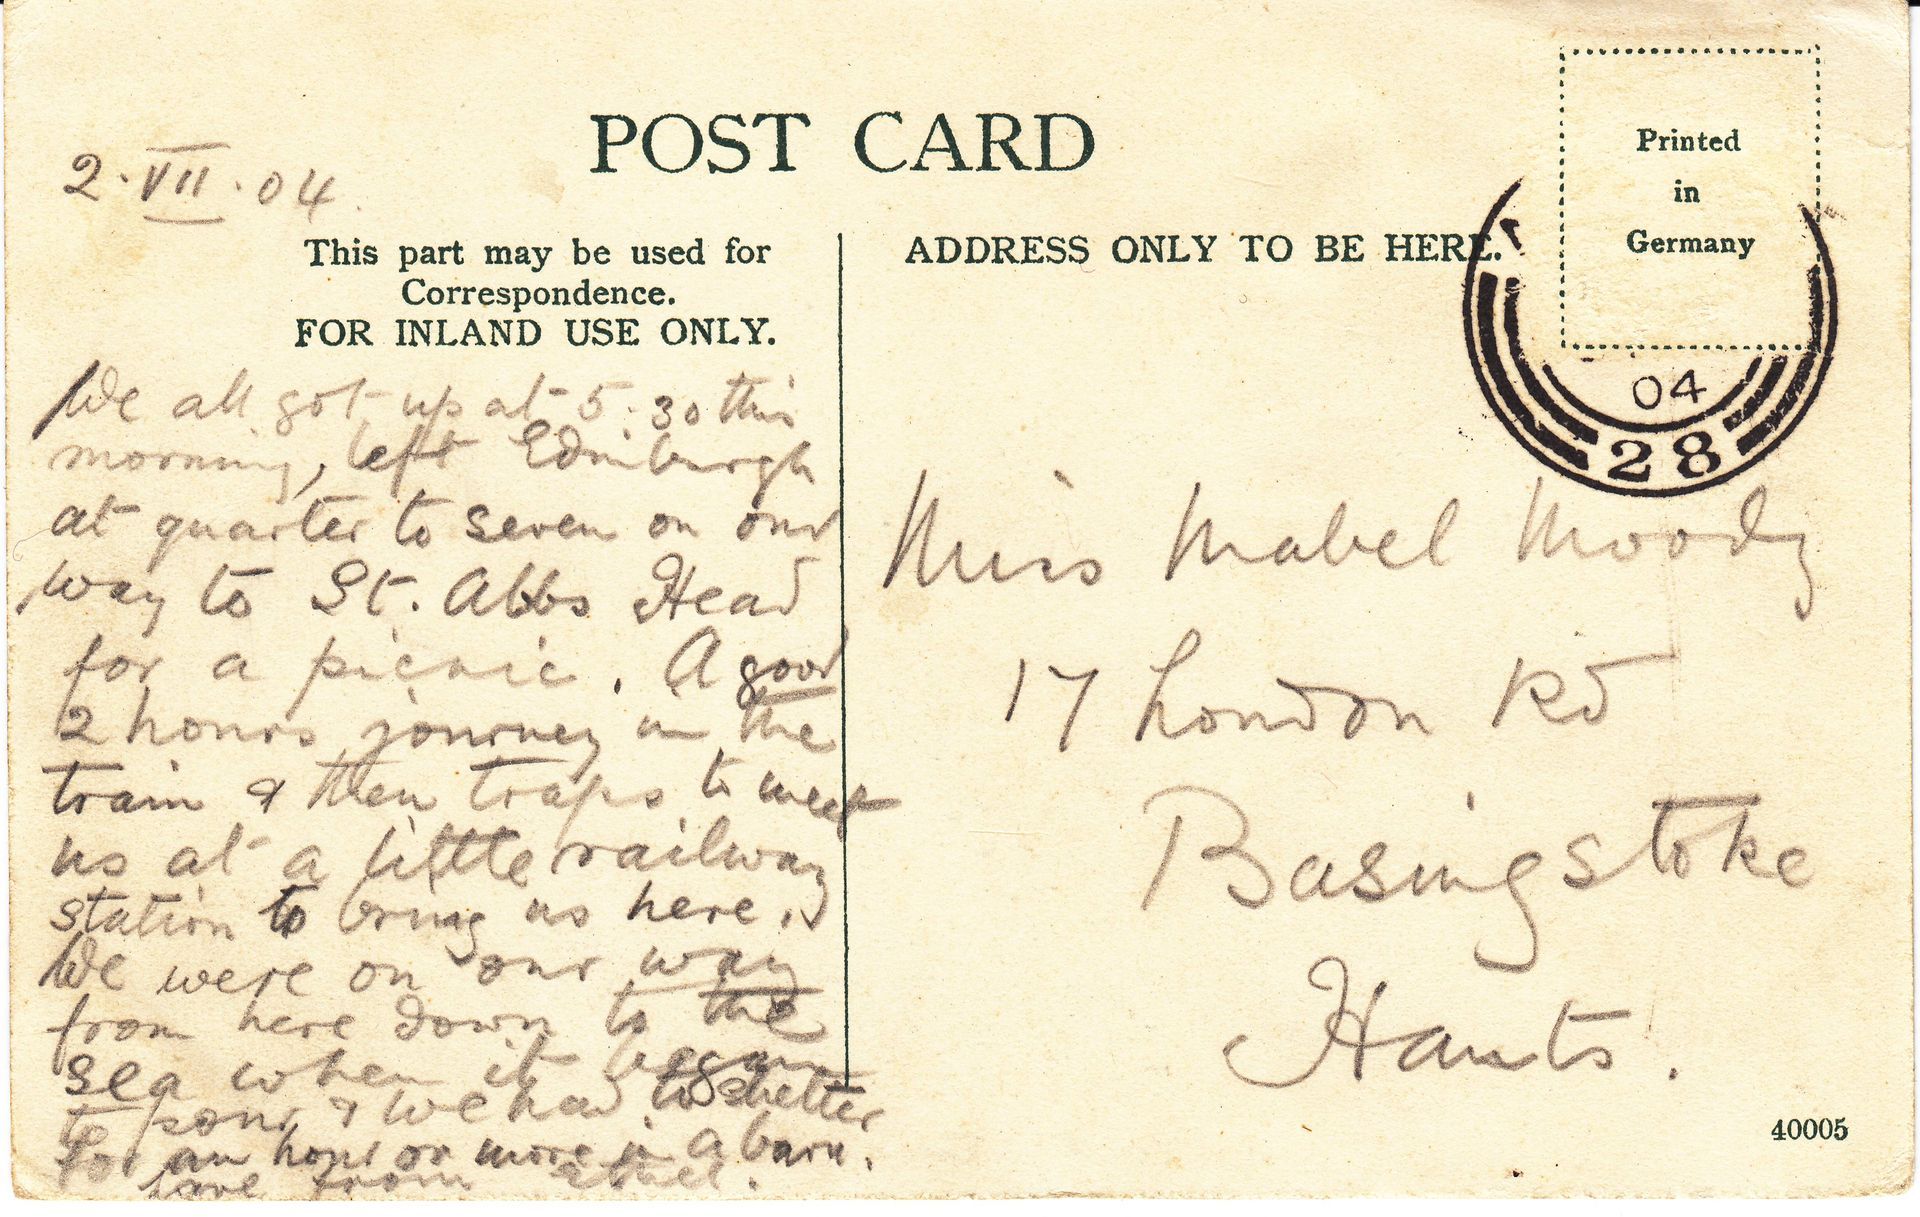 POST CARD
Printed
in
Germany
2.VII.04.
This part may be used for
Correspondence.
FOR INLAND USE ONLY.
We all got up at 5.30 this
morning, left Edinburgh
at quarter to seven on our
way to St. Abbs Head
for a picnic. A good
2 hours journey in the
train & then traps to meet
us at a little railway
station to bring us here.
We were on our way
from here down to the
sea when it began
to pour & we had to shelter
for an hour or more in a barn.
love from Ethel.
ADDRESS ONLY TO BE HERE.
04
28
Miss Mabel Moody
17 London Rd
Basingstoke
Hants.
40005